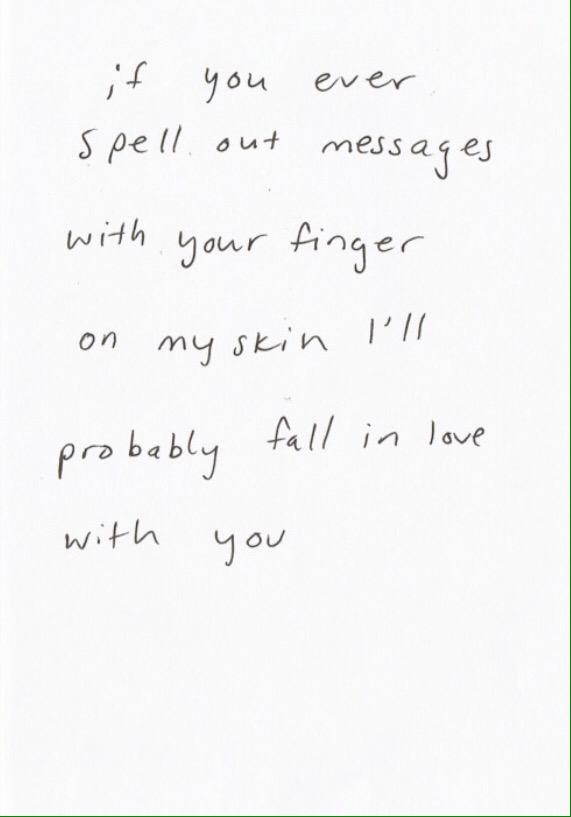 if you ever
spell out messages
with your finger
on my skin I'll
probably fall in love
with you